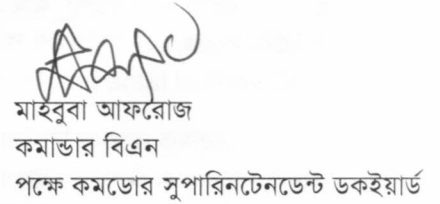 মাহবুবা আফরোজ
কমান্ডার বিএন
পক্ষে কমডোর সুপারিনটেনডেন্ট ডকইয়ার্ড